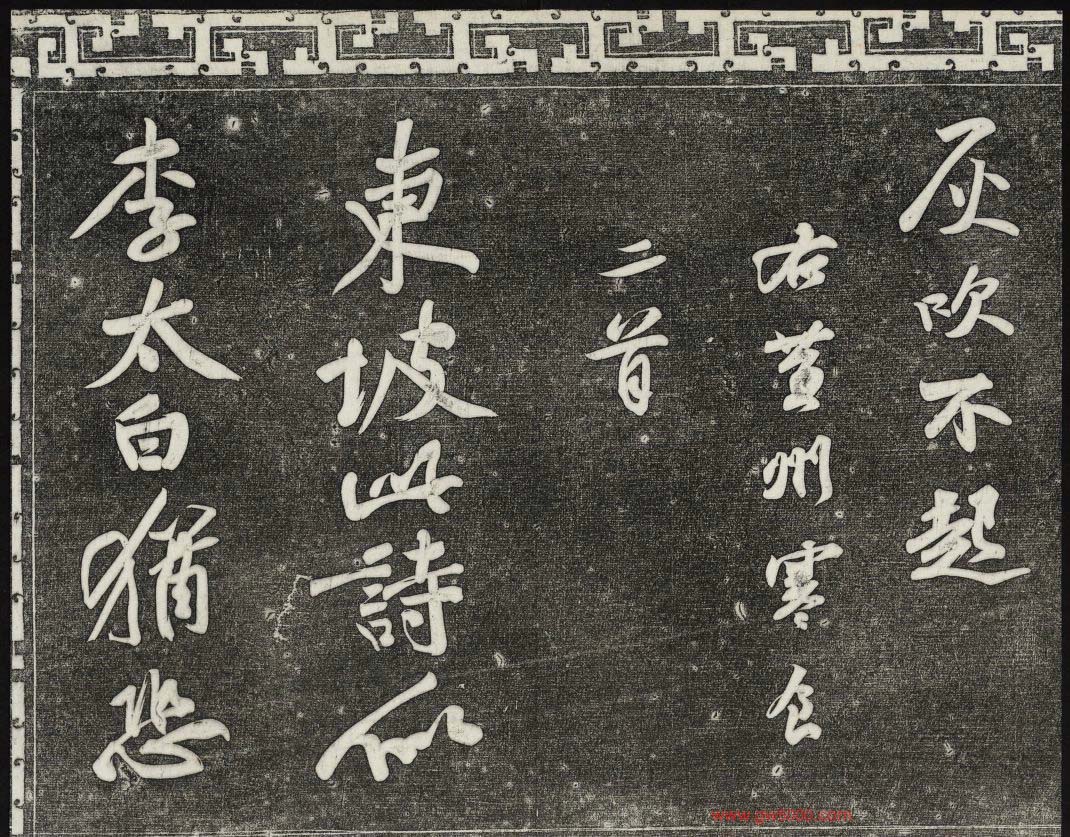 灰吹不起
右黃州寒食
二首
東坡此詩似
李太白猶恐